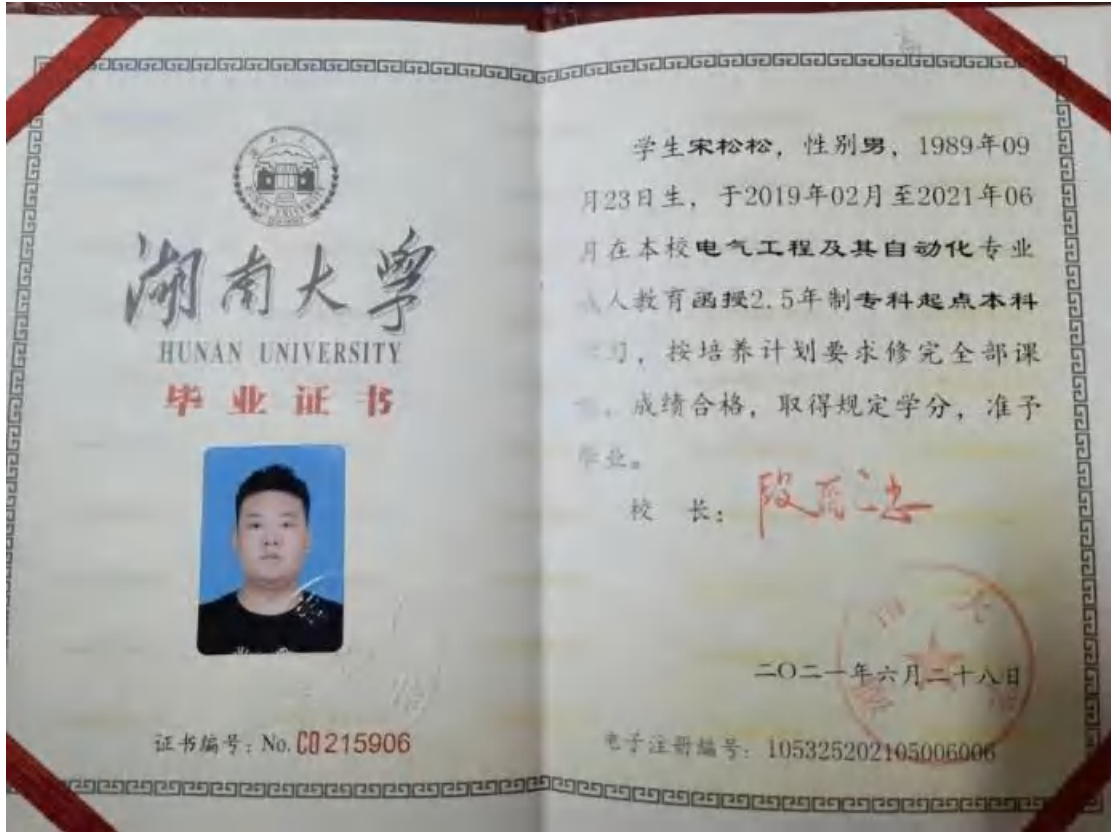 湖南大学
HUNAN UNIVERSITY
毕业证书
证书编号：No.CO215906
学生宋松松，性别男，1989年09
月23日生，于2019年02月至2021年06
月在本校电气工程及其自动化专业
人教育函授2.5年制专科起点本科
习，按培养计划要求修完全部课
，成绩合格，取得规定学分，准予
毕业。
校 长：
二〇二一年六月二十八日
电子注册编号：105325202105006006